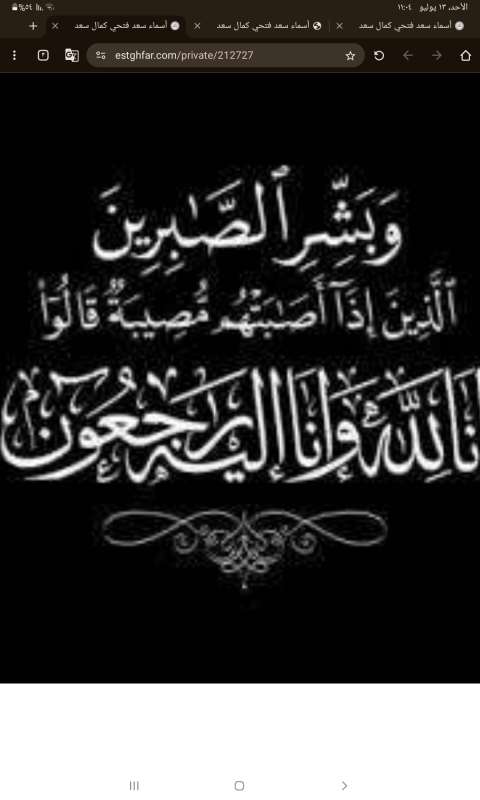 الأحد، ١٣ يوليو ١١:٠٤
٥٤%
أسماء سعد فتحي كمال سعد
أسماء سعد فتحي كمال سعد
أسماء سعد فتحي كمال سعد
estghfar.com/private/212727
٣
وَبَشِّرِ ٱلصَّٰبِرِينَ
ٱلَّذِينَ إِذَآ أَصَٰبَتۡهُم مُّصِيبَةٞ قَالُوٓاْ
إنا لله وإنا إليه راجعون